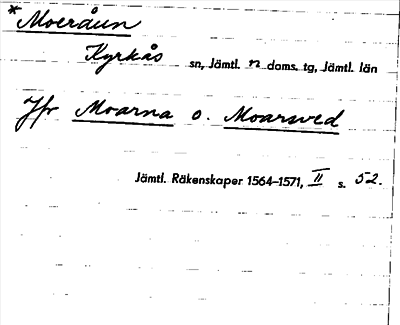 *Moeråun
Kyrkås sn, Jämtl. n doms. tg, Jämtl. län
Jfr Moarna o. Moarswed
Jämtl. Räkenskaper 1564-1571, II s. 52.